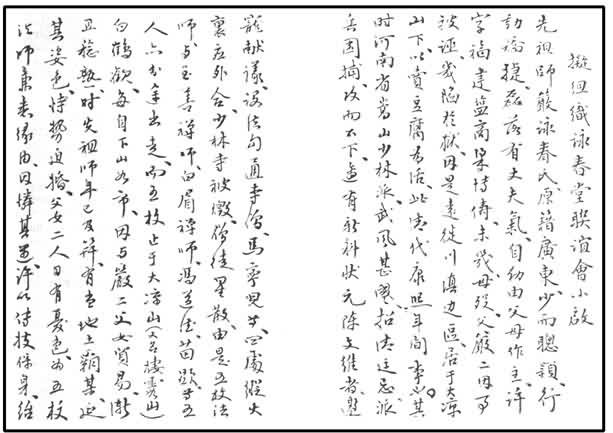 擬組織詠春堂聯誼會小啟
先祖師嚴詠春氏原籍廣東、少而聰穎、行
動捷、磊落有丈夫氣、自幼由父母作主、許
字福建盐商梁博儔、未幾母歿、父嚴二因事
被誣幾陷於獄、因是遠徙川滇边區、居于大凉
山下、以賣豆腐為活、此清代康熙年間事也。其
時河南省嵩山少林派、武風甚盛、招清廷忌、派
兵圍捕攻而不下、適有新科狀元陳文維者、邀
寵献議、設法勾通寺僧、馬寧兒等、四處縱火
裏应外合少林寺被燬、僧徒星散、由是五枚法
師与至善禪師、白眉禪師、馮道德、苗顯等五
人亦分途出走、而五枚止于大凉山(又名棲霞山)
白鶴觀、每自下山市、因与嚴二父女貿易、漸
且稔熟、時先祖師年已及笄、有當地土霸某、
其姿色、恃勢迫婚、父女二人日有憂色、為五枚
法師悉緣由、因憐其遇、許以传技保身、